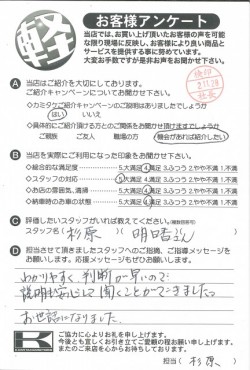 軽
お客様アンケート
当店では、お買い上げ頂いたお客様の声を可能
な限り現場に反映し、お客様により良い商品と
サービスを提供する事に努めています。
大変お手数ですが是非お声をお聞かせ下さい。
A 当店はご紹介を大切にしております。
ご紹介キャンペーンについてお聞かせ下さい。
◇カミタケご紹介キャンペーンのご説明はありましたでしょうか
はい いいえ
◇具体的にご紹介頂ける方とのご関係をお聞かせ頂けますでしょうか
ご親族 ご友人 職場の方 機会があれば紹介したい
B 当店を実際にご利用になった印象をお聞かせ下さい。
◇総合的な満足度 5.大満足 4.満足 3.ふつう 2.やや不満 1.不満
◇スタッフの対応 5.大満足 4.満足 3.ふつう 2.やや不満 1.不満
◇お店の雰囲気、清掃 5.大満足 4.満足 3.ふつう 2.やや不満 1.不満
◇納車時のお車の状態 5.大満足 4.満足 3.ふつう 2.やや不満 1.不満
C 評価したいスタッフがいれば教えてください。(複数回答可)
スタッフ名( 杉原 )( 明香さん )
D 担当させて頂きましたスタッフへのご指摘、ご指導メッセージを
お願いします。応援メッセージもぜひお願いします。
わかりやすく、判断が早いので
説明も安心して聞くことができました。
お世話になりました。
K
ご協力に心よりお礼を申し上げます。
今後とも宜しくお引き立てご愛顧の程お願い申し上げます。
またのご来店を心からお待ちしております。
担当( 杉原 )